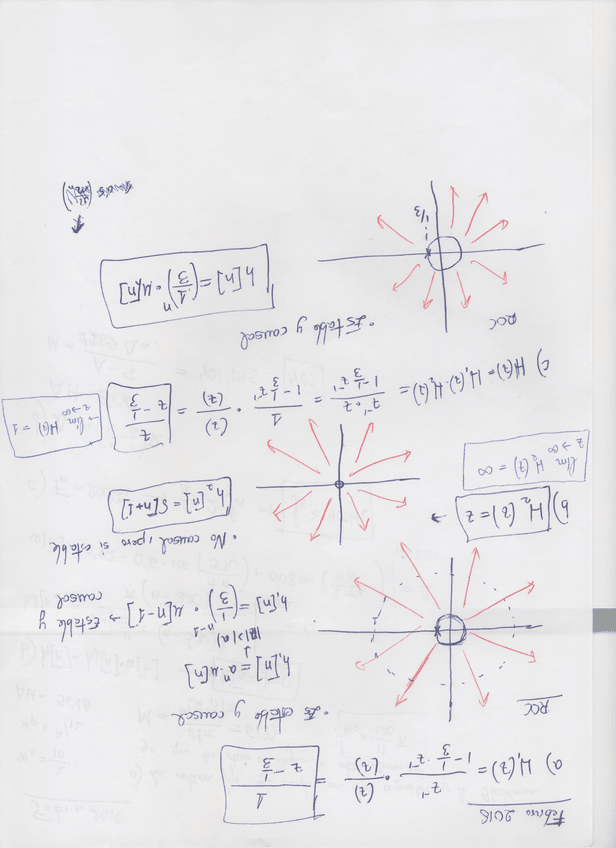 Febrero 2018
a) H₁(z) = z⁻¹ / (1 - 1/3 · z⁻¹) · (z)/(z) = 1 / (z - 1/3)
ROC
• Es estable y causal
h₁[n] = aⁿ · u[n]
↓
(|z| > |a|)
h₁[n] = (1/3)ⁿ⁻¹ · u[n-1] → Estable y
causal
b) H₂(z) = z
lim z→∞ H₂(z) = ∞
• No causal, pero si estable
h₂[n] = δ[n+1]
c) H(z) = H₁(z) · H₂(z) = z⁻¹ · z / (1 - 1/3 z⁻¹) = 1 / (1 - 1/3 z⁻¹) · (z)/(z) = z / (z - 1/3)
lim z→∞ H(z) = 1
ROC
• Estable y causal
1/3
h[n] = (1/3)ⁿ · u[n]